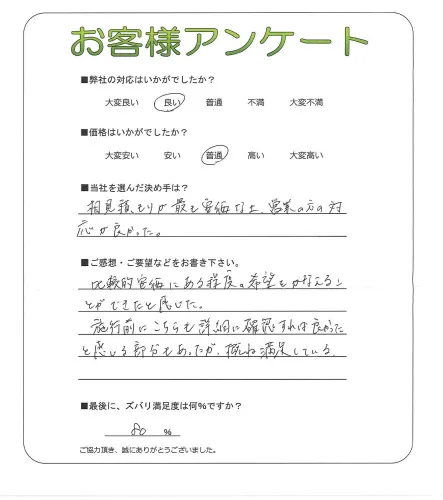 お客様アンケート
■弊社の対応はいかがでしたか?
大変良い 良い 普通 不満 大変不満
■価格はいかがでしたか?
大変安い 安い 普通 高い 大変高い
■当社を選んだ決め手は?
相見積もりが最も安価な上、営業の方の対
応が良かった。
■ご感想・ご要望などをお書き下さい。
比較的安価にある程度の希望をかなえるこ
とができたと感じた。
施行前にこちらも詳細に確認すれば良かった
と感じる部分もあったが、概ね満足している。
■最後に、ズバリ満足度は何%ですか?
80 %
ご協力頂き、誠にありがとうございました。